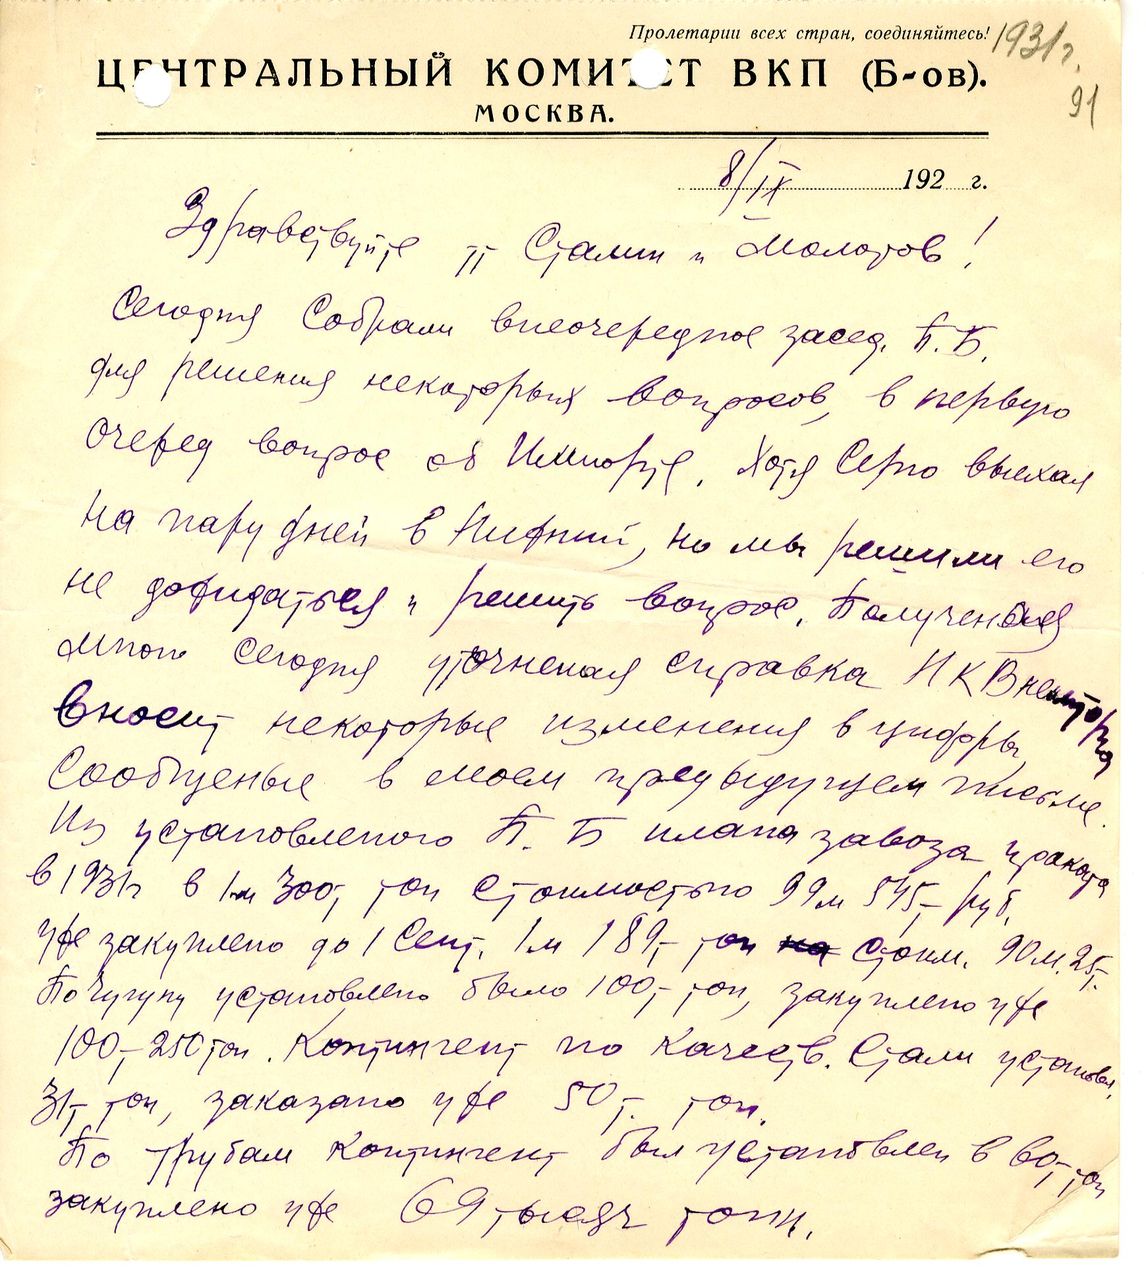 Пролетарии всех стран, соединяйтесь!
1931 г.
ЦЕНТРАЛЬНЫЙ КОМИТЕТ ВКП (Б-ов).
91
МОСКВА.
8/IX 192 г.
Здравствуйте тт Сталин и Молотов!
Сегодня собрали внеочередное засед. П.Б.
для решения некоторых вопросов, в первую
очеред вопрос об Импорте. Хотя Серго выехал
на пару дней в Нижний, но мы решили его
не дожидаться и решить вопрос. Полученая
мною сегодня уточненая справка НКВнешторга
вносит некоторые изменения в цифры,
сообщеные в моем предыдущем письме.
Из установленого П.Б плана завоза проката
в 1931г в 1м 300,- тон стоимостью 99м 545,- руб.
уже закуплено до 1 Сент. 1м 189,- тон стоим. 90м.25,-
По Чугуну установлено было 100,- тон, закуплено уже
100,- 250 тон. Контингент по качеств. Стали установл.
31,- тон, заказано уже 50 т. тон.
По трубам контингент был установлен в 60,- тон
закуплено уже 69 тысяч тонн.